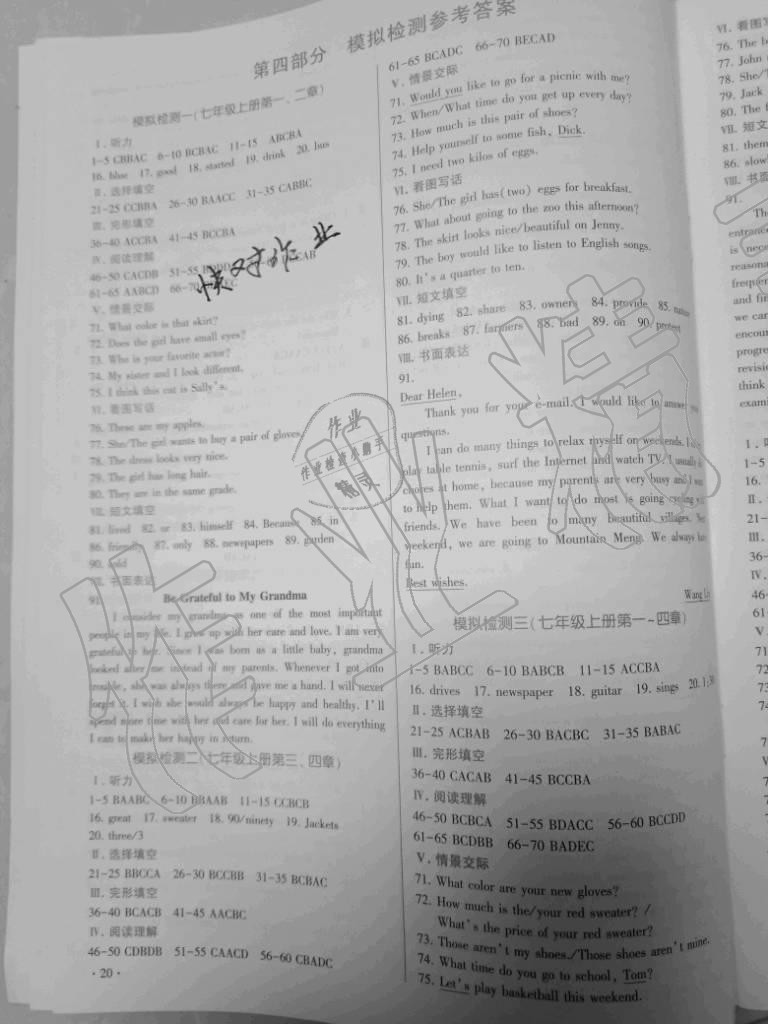 第四部分 模拟检测参考答案
模拟检测一(七年级上册第一、二章)
Ⅰ. 听力
1-5 CBBAC 6-10 BCBAC 11-15 ABCBA
16. blue 17. good 18. started 19. drink 20. bus
Ⅱ. 选择填空
21-25 CCBBA 26-30 BAACC 31-35 CABBC
Ⅲ. 完形填空
36-40 ACCBA 41-45 BCCBA
Ⅳ. 阅读理解
46-50 CACDB 51-55
61-65 AABCD 66-70
Ⅴ. 情景交际
71. What color is that skirt?
72. Does the girl have small eyes?
73. Who is your favorite actor?
74. My sister and I look different.
75. I think this cat is Sally's.
Ⅵ. 看图写话
76. These are my apples.
77. She/The girl wants to buy a pair of gloves.
78. The dress looks very nice.
79. The girl has long hair.
80. They are in the same grade.
Ⅶ. 短文填空
81. lived 82. or 83. himself 84. Because 85. in
86. friendly 87. only 88. newspapers 89. garden
90. sold
Ⅷ. 书面表达
91.
Be Grateful to My Grandma
I consider my grandma as one of the most important
people in my life. I grew up with her care and love. I am very
grateful to her. Since I was born as a little baby, grandma
looked after me instead of my parents. Whenever I got into
trouble, she was always there and gave me a hand. I will never
forget it. I wish she would always be happy and healthy. I'll
spend more time with her and care for her. I will do everything
I can to make her happy in return.
模拟检测二(七年级上册第三、四章)
Ⅰ. 听力
1-5 BAABC 6-10 BBAAB 11-15 CCBCB
16. great 17. sweater 18. 90/ninety 19. Jackets
20. three/3
Ⅱ. 选择填空
21-25 BBCCA 26-30 BCCBB 31-35 BCBAC
Ⅲ. 完形填空
36-40 BCACB 41-45 AACBC
Ⅳ. 阅读理解
46-50 CDBDB 51-55 CAACD 56-60 CBADC
· 20 ·
61-65 BCADC 66-70 BECAD
Ⅴ. 情景交际
71. Would you like to go for a picnic with me?
72. When/What time do you get up every day?
73. How much is this pair of shoes?
74. Help yourself to some fish, Dick.
75. I need two kilos of eggs.
Ⅵ. 看图写话
76. She/The girl has(two) eggs for breakfast.
77. What about going to the zoo this afternoon?
78. The skirt looks nice/beautiful on Jenny.
79. The boy would like to listen to English songs.
80. It's a quarter to ten.
Ⅶ. 短文填空
81. dying 82. share 83. owners 84. provide 85. nature
86. breaks 87. farmers 88. bad 89. on 90. protect
Ⅷ. 书面表达
91.
Dear Helen,
Thank you for your e-mail. I would like to answer your
questions.
I can do many things to relax myself on weekends. I
play table tennis, surf the Internet and watch TV. I usually do
chores at home, because my parents are very busy and I want
to help them. What I want to do most is going cycling
friends. We have been to many beautiful villages.
weekend, we are going to Mountain Meng. We always have
fun.
Best wishes.
Wang
模拟检测三(七年级上册第一~四章)
Ⅰ. 听力
1-5 BABCC 6-10 BABCB 11-15 ACCBA
16. drives 17. newspaper 18. guitar 19. sings 20. 1:30
Ⅱ. 选择填空
21-25 ACBAB 26-30 BACBC 31-35 BABAC
Ⅲ. 完形填空
36-40 CACAB 41-45 BCCBA
Ⅳ. 阅读理解
46-50 BCBCA 51-55 BDACC 56-60 BCCDD
61-65 BCDBB 66-70 BADEC
Ⅴ. 情景交际
71. What color are your new gloves?
72. How much is the/your red sweater? /
What's the price of your red sweater?
73. Those aren't my shoes./Those shoes aren't mine.
74. What time do you go to school, Tom?
75. Let's play basketball this weekend.
快对作业
作业
作业检查小助手
精灵